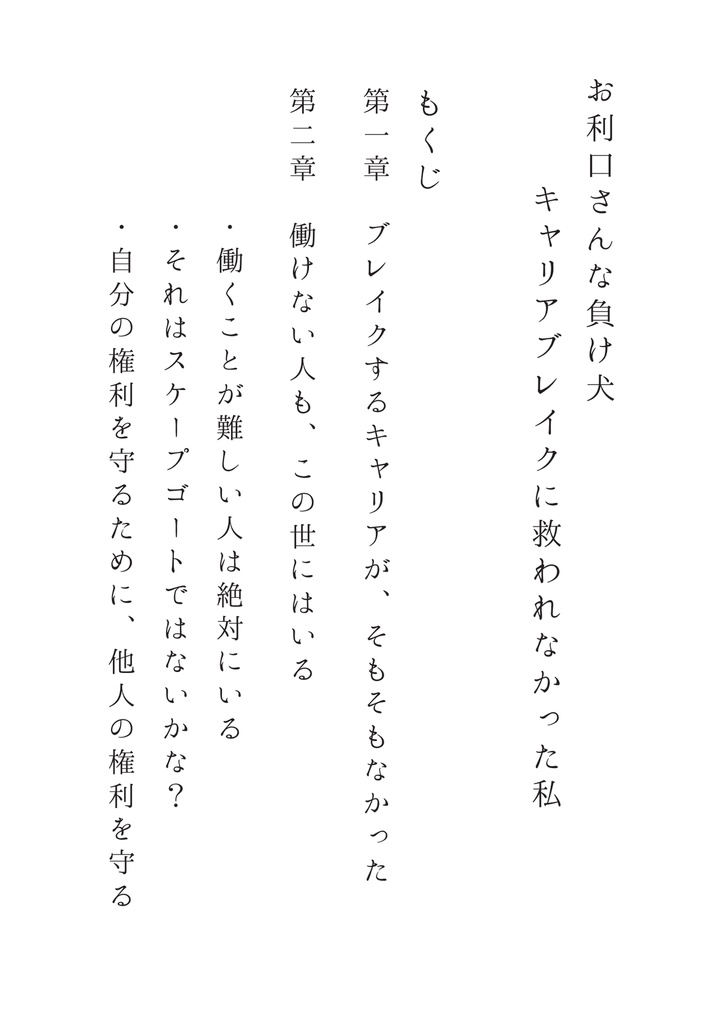 お利口さんな負け犬
キャリアブレイクに救われなかった私
もくじ
第一章　ブレイクするキャリアが、そもそもなかった
第二章　働けない人も、この世にはいる
・働くことが難しい人は絶対にいる
・それはスケープゴートではないかな？
・自分の権利を守るために、他人の権利を守る